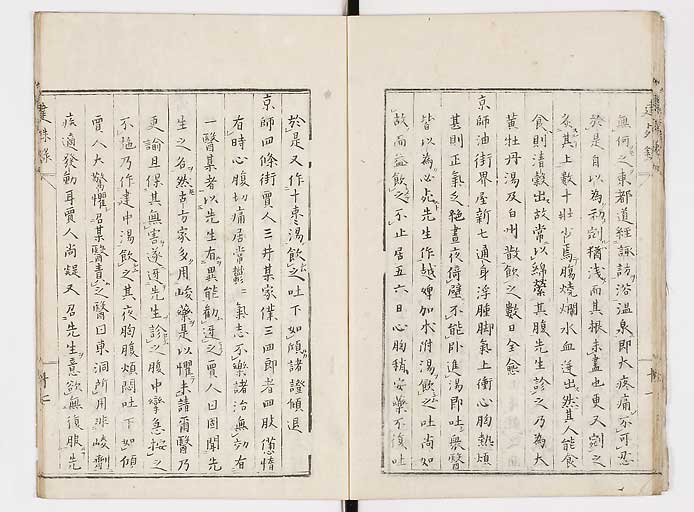 無何之東都道經諏訪浴溫泉即大疼痛不可忍
於是自以為初劄猶淺而其根未盡也更又劄之
灸其上數十壯少焉腸燒爛水血迸出然其人能食
食則清穀出故常以綿縈其腹先生診之乃為大
黃牡丹湯及伯州散飲之數日全愈
京師油街界屋新七通身浮腫脚氣上衝心胸熱煩
甚則正氣乏絕晝夜倚壁不能臥進湯即吐衆醫
皆以為必死先生作越婢加朮附湯飲之吐尚如
故而益飲之不止居五六日心胸稍安藥不復吐
於是又作十棗湯飲之吐下如傾諸證傾退
京師四條街賈人三井某家僕三四郎者四肢憊惰
有時心腹切痛居常鬱鬱氣志不樂諸治無効有
一醫某者以先生有異能勸迓之賈人曰固聞先
生之名然古方家多用峻藥是以懼未請爾醫乃
更諭且保其無害遂迓先生診之腹中攣急按之
不弛乃作建中湯飲之其夜胸腹煩悶吐下如傾
賈人大驚懼召某醫責之醫曰東洞所用非峻劑
疾適發動耳賈人尚疑又召先生意欲無復服先
建殊錄